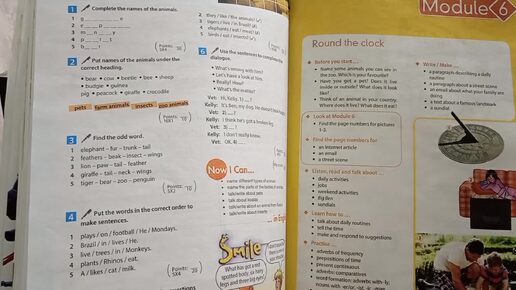 1 Complete the names of the animals.
1 g
2
3 m _ n _ y
4 p
5 b
(Points: )
2 Put names of the animals under the correct heading.
• bear • cow • beetle • bee • sheep
• budgie • guinea pig • peacock • giraffe • crocodile
pets farm animals insects zoo animals
(Points: 10X1 10)
3 Find the odd word.
1 elephant – fur – trunk – tail
2 feathers – beak – insect – wings
3 lion – paw – tail – feather
4 giraffe – tail – neck – wings
5 tiger – bear – zoo – penguin
(Points: 5X2 10)
4 Put the words in the correct order to make sentences.
1 plays / on / football / He / Mondays.
2 Brazil / in / lives / He.
3 live / trees / in / Monkeys.
4 plants / Rhinos / eat.
5 A / likes / cat / milk.
(Points: 5X4 20)
2 they / like / the animals? (✓)
3 tigers / live / in Brazil? (✗)
4 elephants / eat / meat? (✗)
5 birds / eat / insects? (✓)
(Points: )
6 Use the sentences to complete the dialogue.
• What's wrong with him?
• Let's have a look at him.
• Really? How?
• What's the matter?
Vet: Hi, Kelly, 1) ... ?
Kelly: It's Ben, my dog. He doesn't look happy.
Vet: 2) ... ?
Kelly: I think he's got a broken leg.
Vet: 3) ... ?
Kelly: I don't really know.
Vet: OK. 4) ...
Now I Can...
• name different types of animals
• name the parts of the bodies of animals
• talk/write about pets
• talk about koalas
• talk/write about an animal from
• talk/write about insects
... in English
Smile
What has got a
spotted body, six hairy
legs and three big eyes?
Module 6
Round the clock
Before you start ...
• Name some animals you can see in the zoo. Which is your favourite?
• Have you got a pet? Does it live inside or outside? What does it look like?
• Think of an animal in your country. Where does it live? What does it eat?
Look at Module 6
• Find the page numbers for pictures 1-3.
Find the page numbers for
• an Internet article
• an email
• a street scene
Listen, read and talk about ...
• daily activities
• jobs
• weekend activities
• Big Ben
• sundials
Learn how to ...
• talk about daily routines
• tell the time
• make and respond to suggestions
Practise ...
• adverbs of frequency
• prepositions of time
• present continuous
• adverbs: comparatives
• word formation: adverbs with -ly,
Write / Make ...
• a paragraph describing a daily routine
• a paragraph about a street scene
• an email about what your family are doing
• a text about a famous landmark
• a sundial